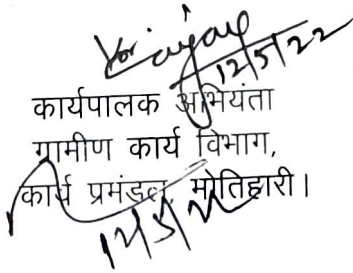 12/5/22
कार्यपालक अभियंता
ग्रामीण कार्य विभाग,
कार्य प्रमंडल, मोतिहारी।